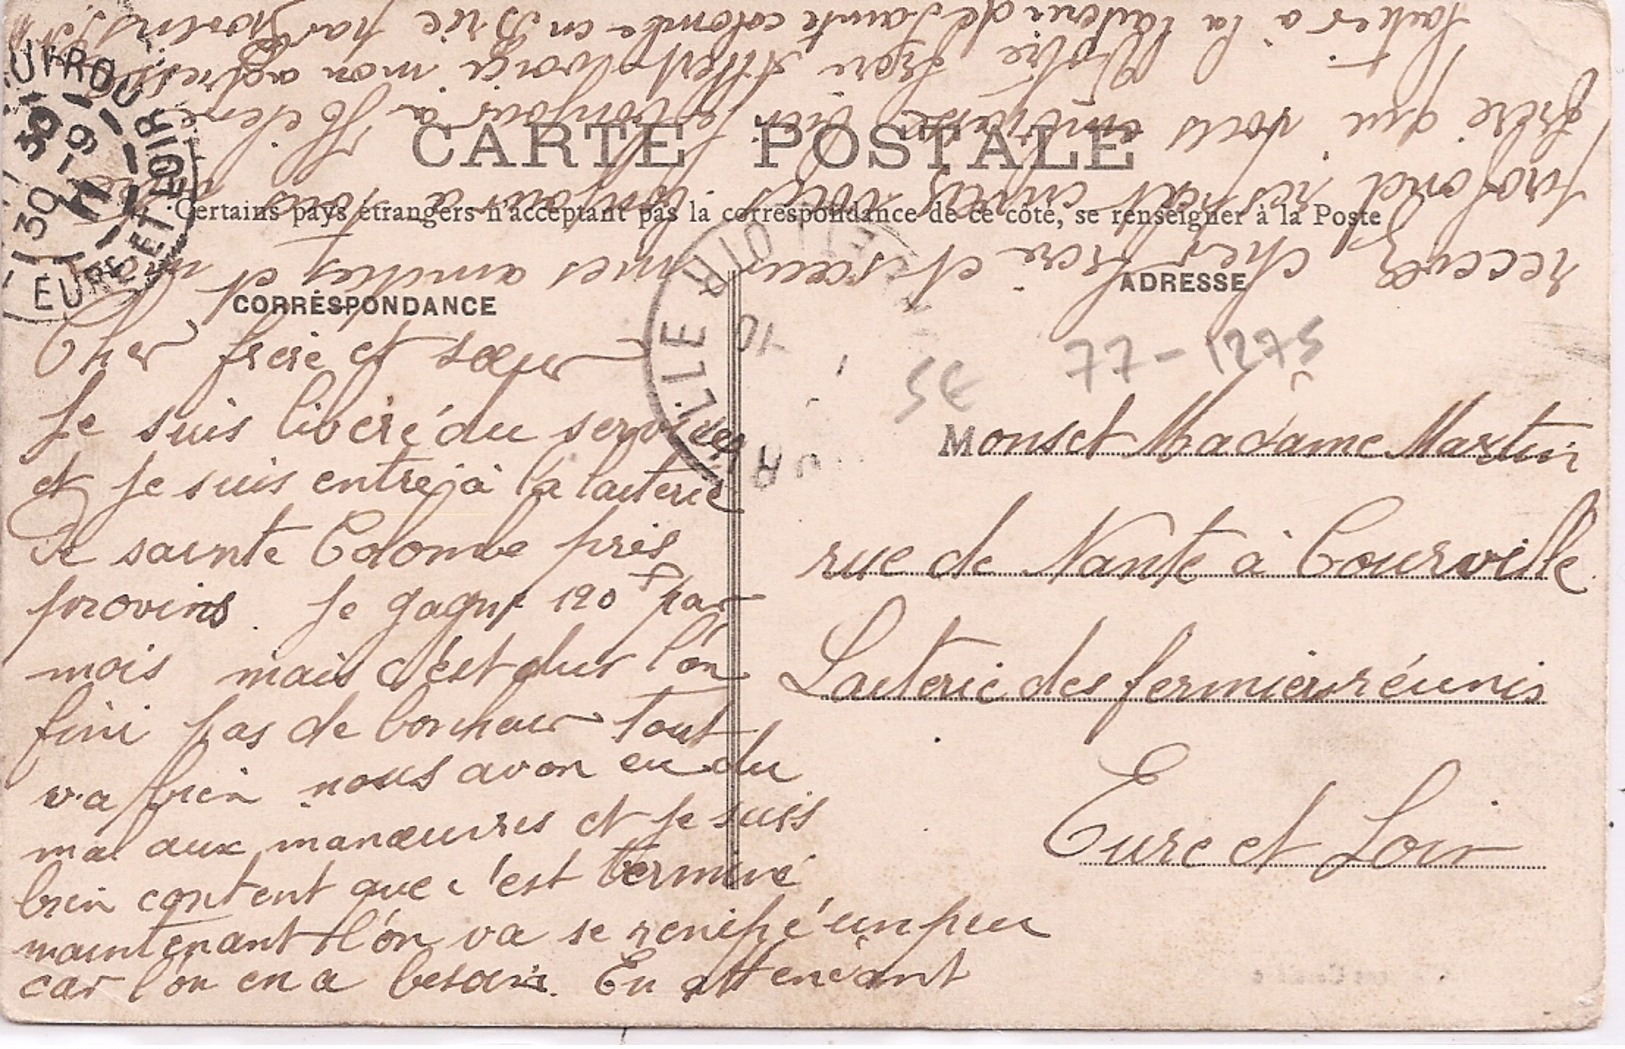 CARTE POSTALE
Certains pays étrangers n'acceptant pas la correspondance de ce côté, se renseigner à la Poste
CORRESPONDANCE
Cher frère et sœur
Je suis libéré du service
et je suis entré à la laiterie
de sainte Colombe près
provins. Je gagne 190 f par
mois mais c'est dur l'on
fini pas de bonheur tout
va bien nous avon eu du
mal aux manœuvres et je suis
bien content que c'est terminé
maintenant l'on va se renipé un peu
car l'on en a besoin. En attendant
recevez cher frère et sœur mes amitiés et
bonjour à tous
frère qui vous embrasse bien le bonjour à Hélène
Votre frère Albert voici mon adresse
laitier à la laiterie de Sainte colombe en Brie par provins
ADRESSE
77-1275
35
Mons et Madame Martin
rue de Nante à Courville
Laiterie des fermiers réunis
Eure et Loir
EURE ET LOIR
30 -9 11